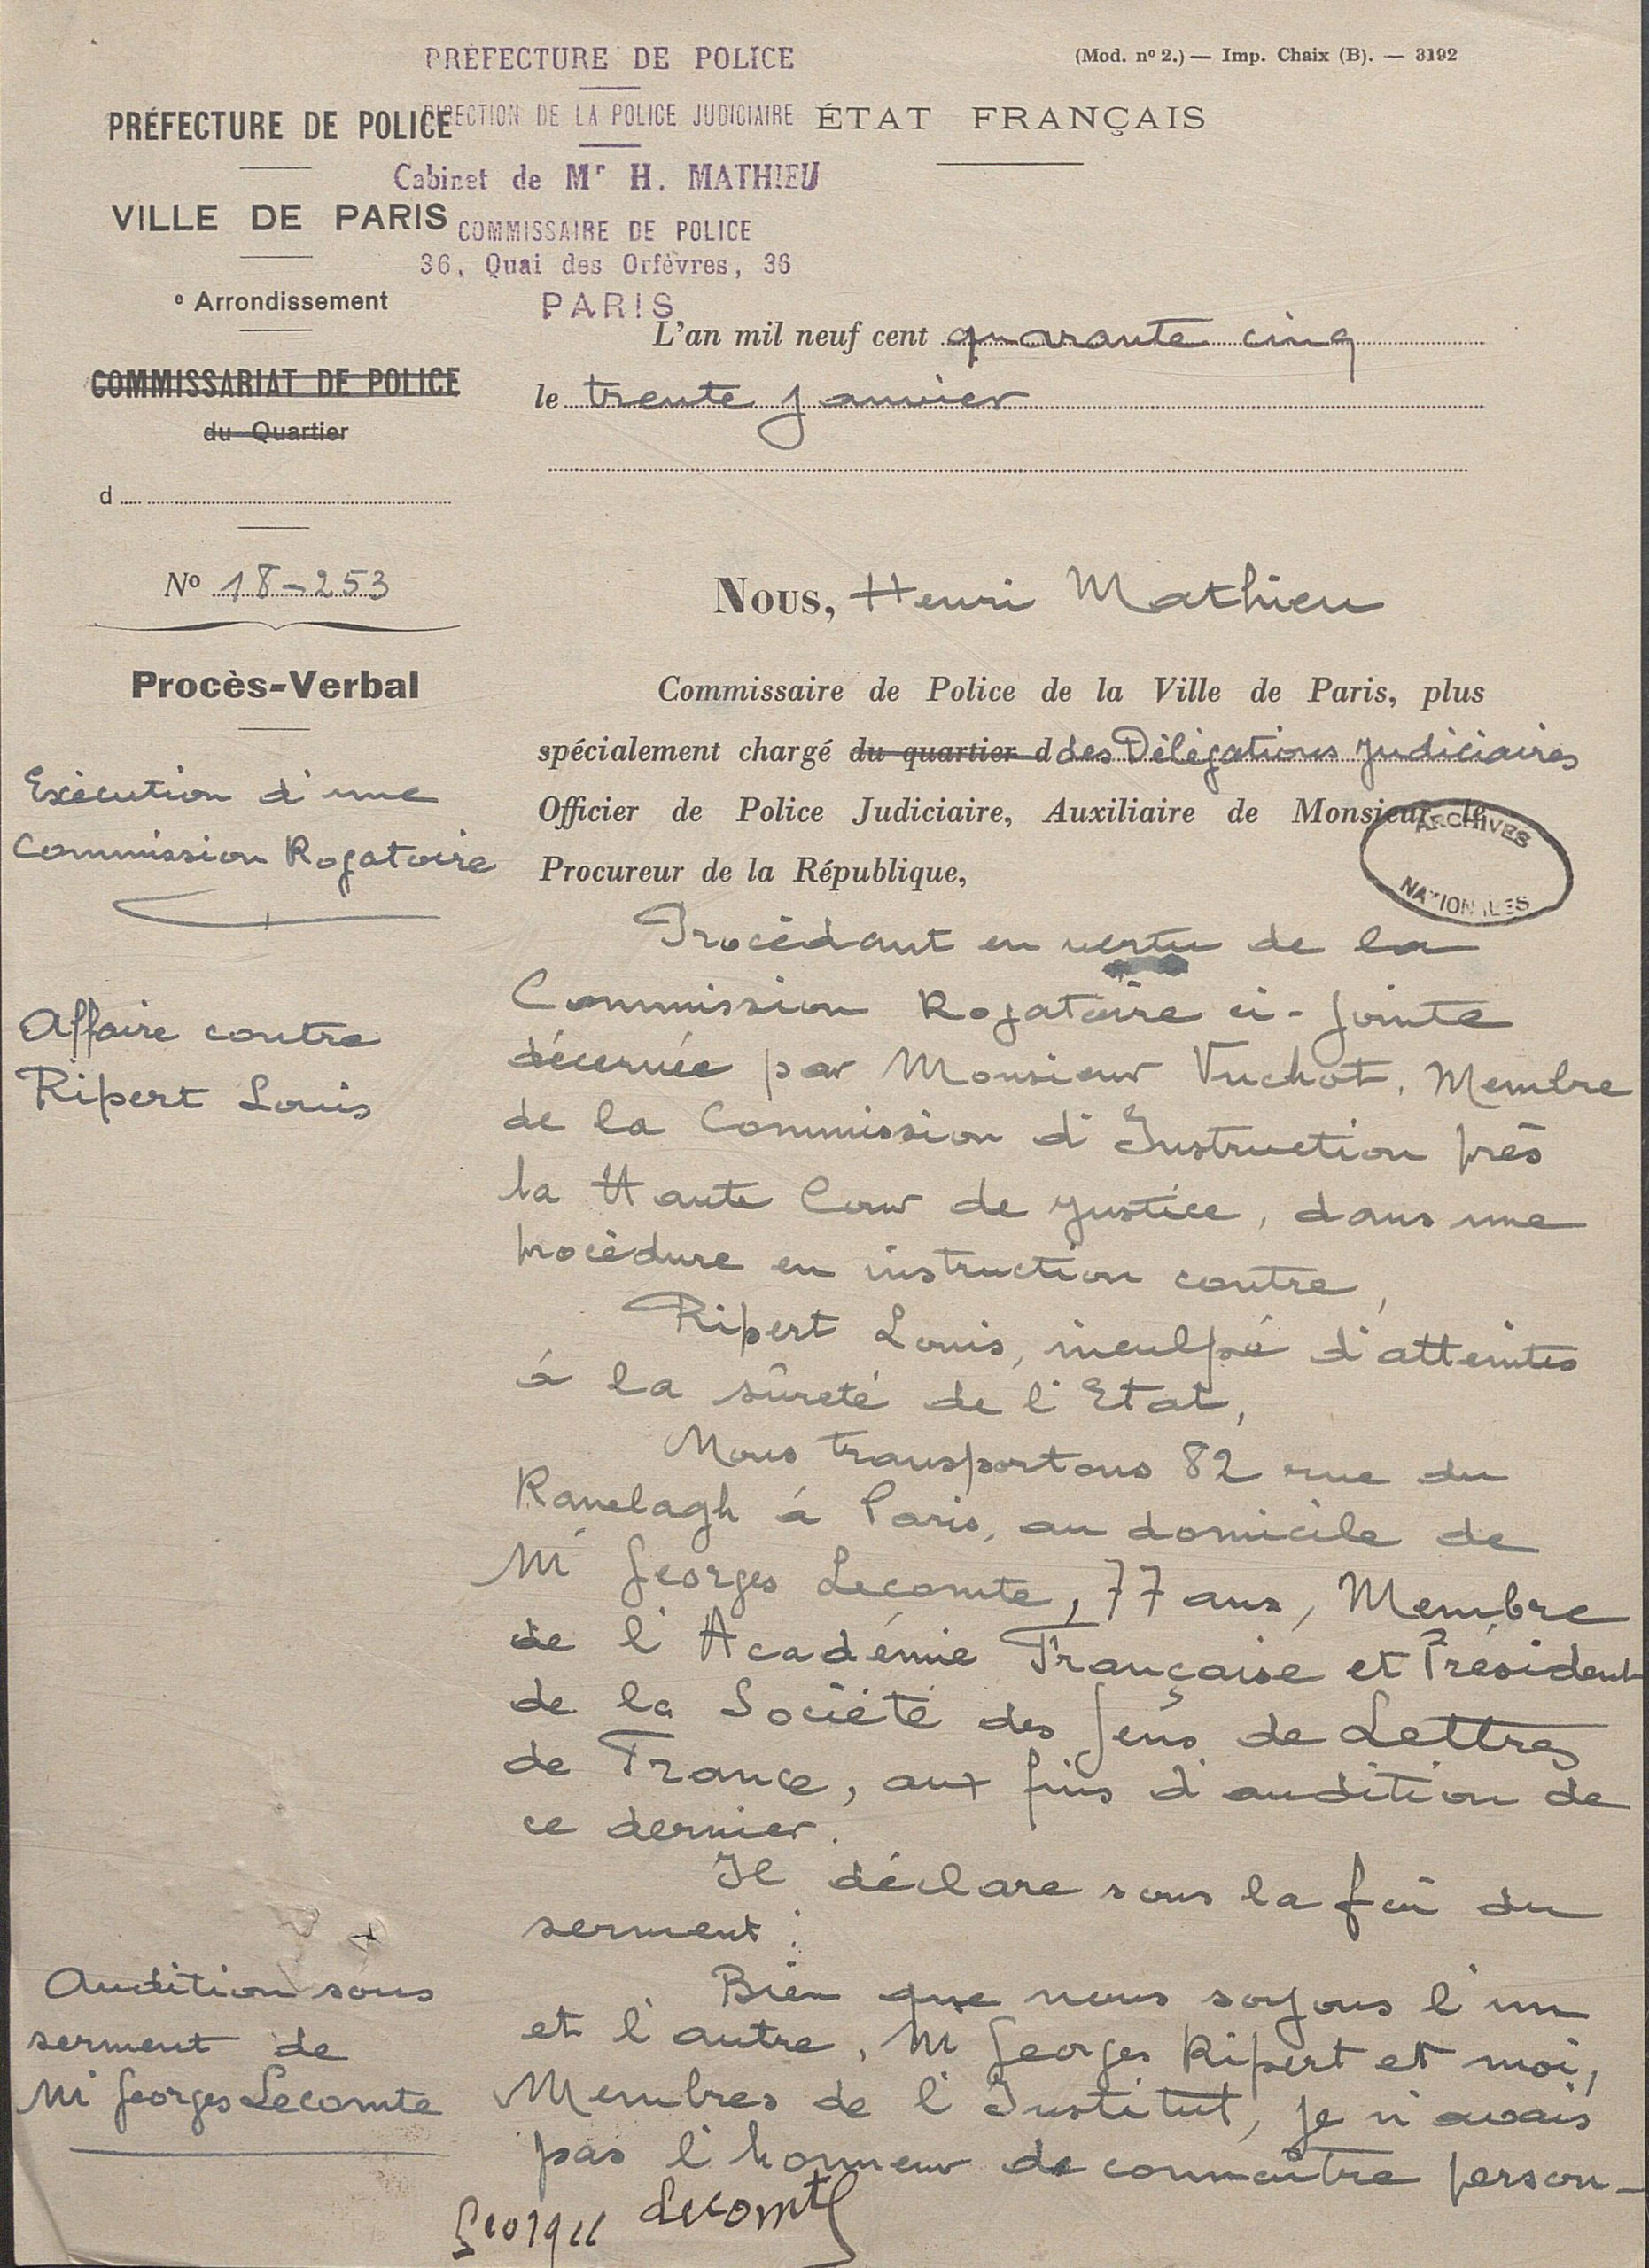 PRÉFECTURE DE POLICE
DIRECTION DE LA POLICE JUDICIAIRE
Cabinet de Mr H. MATHIEU
COMMISSAIRE DE POLICE
36, Quai des Orfèvres, 36
PARIS
(Mod. nº 2.) — Imp. Chaix (B). — 3192
PRÉFECTURE DE POLICE
VILLE DE PARIS
e Arrondissement
COMMISSARIAT DE POLICE
du Quartier
d
Nº 18-253
Procès-Verbal
Exécution d'une
Commission Rogatoire
Affaire contre
Ripert Louis
Audition sous
serment de
Mr Georges Lecomte
ÉTAT FRANÇAIS
L'an mil neuf cent quarante cinq
le trente Janvier
Nous, Henri Mathieu
Commissaire de Police de la Ville de Paris, plus
spécialement chargé du quartier d des Délégations Judiciaires
Officier de Police Judiciaire, Auxiliaire de Monsieur le
Procureur de la République,
ARCHIVES
NATIONALES
Procédant en vertu de la
Commission Rogatoire ci-jointe
décernée par Monsieur Vuchot, Membre
de la Commission d'Instruction près
la Haute Cour de Justice, dans une
procédure en instruction contre,
Ripert Louis, inculpé d'atteintes
à la sûreté de l'Etat,
Nous transportons 82 rue du
Ranelagh à Paris, au domicile de
Mr Georges Lecomte, 77 ans, Membre
de l'Académie Française et Président
de la Société des Gens de Lettres
de France, aux fins d'audition de
ce dernier.
Il déclare sous la foi du
serment :
Bien que nous soyons l'un
et l'autre, Mr Georges Ripert et moi,
Membres de l'Institut, je n'avais
pas l'honneur de connaître person-
Georges Lecomte